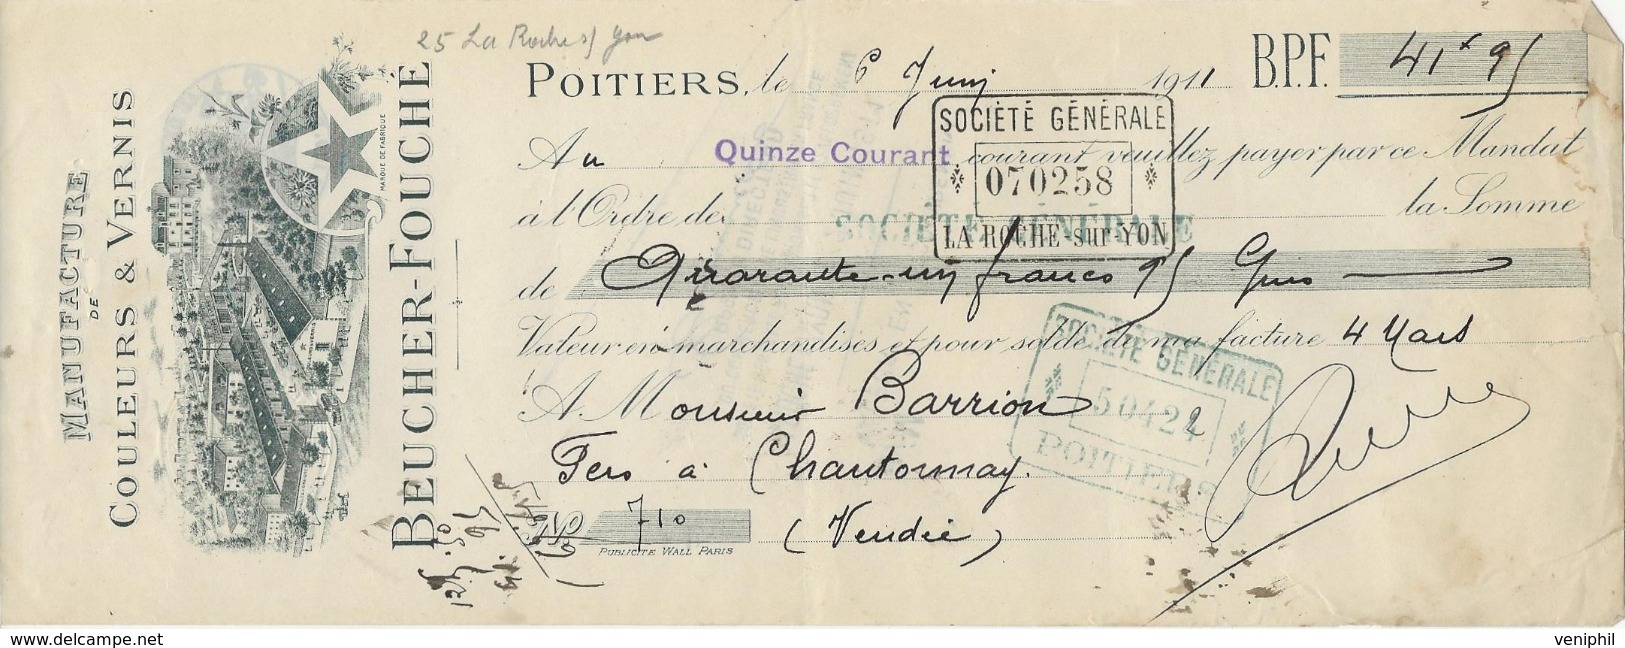 25 La Roche s/ Yon
MANUFACTURE
DE
COULEURS & VERNIS
MARQUE DE FABRIQUE
BEUCHER-FOUCHÉ
POITIERS, le 6 Juin 1911 B.P.F. 41 x 95
Au Quinze Courant courant veuillez payer par ce Mandat
à l'Ordre de la Somme
SOCIÉTÉ GÉNÉRALE
SOCIÉTÉ GÉNÉRALE
070258
LA ROCHE-sur-YON
de Quarante-un francs 95 Cmes
Valeur en marchandises et pour solde de ma facture 4 Mars
SOCIÉTÉ GÉNÉRALE
50424
POITIERS
A Monsieur Barrion
Fers à Chantonnay.
(Vendée)
No 710
PUBLICITÉ WALL PARIS
125.50
41.95
veniphil
www.delcampe.net